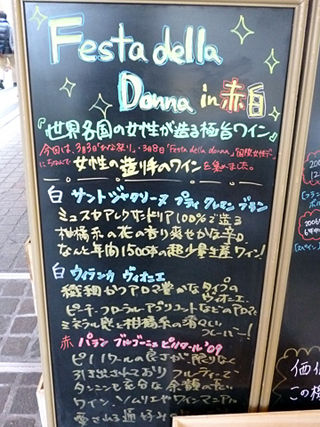 Festa della
Donna in 赤白
『世界各国の女性が造る極旨ワイン』
今回は、3月3日「ひな祭り」・3月8日「Festa della donna」国際女性デー
にちなんで女性の造り手のワインを集めました。
白 サントジャクリーヌ プティ クレモン ブラン
ミュスカアレクサンドリア100%で造る
柑橘系の花の香り爽やかな辛口
なんと年間1500本の超少量生産ワイン!
白 ヴィオニエ
繊細かつアロマ豊かなタイプの
ヴィオニエ。
ピーチ・フローラル・アプリコットなどのアロマと
ミネラル感と柑橘系の清々しい
フレーバー!
赤 パラン ブルゴーニュ ピノノワール'09
ピノノワールの良さが限りなく
引き出されており フルーティーで
タンニンも充分な余韻の長い
ワイン。ソムリエやワインマニアに
愛される通好み
2006
価値
この機